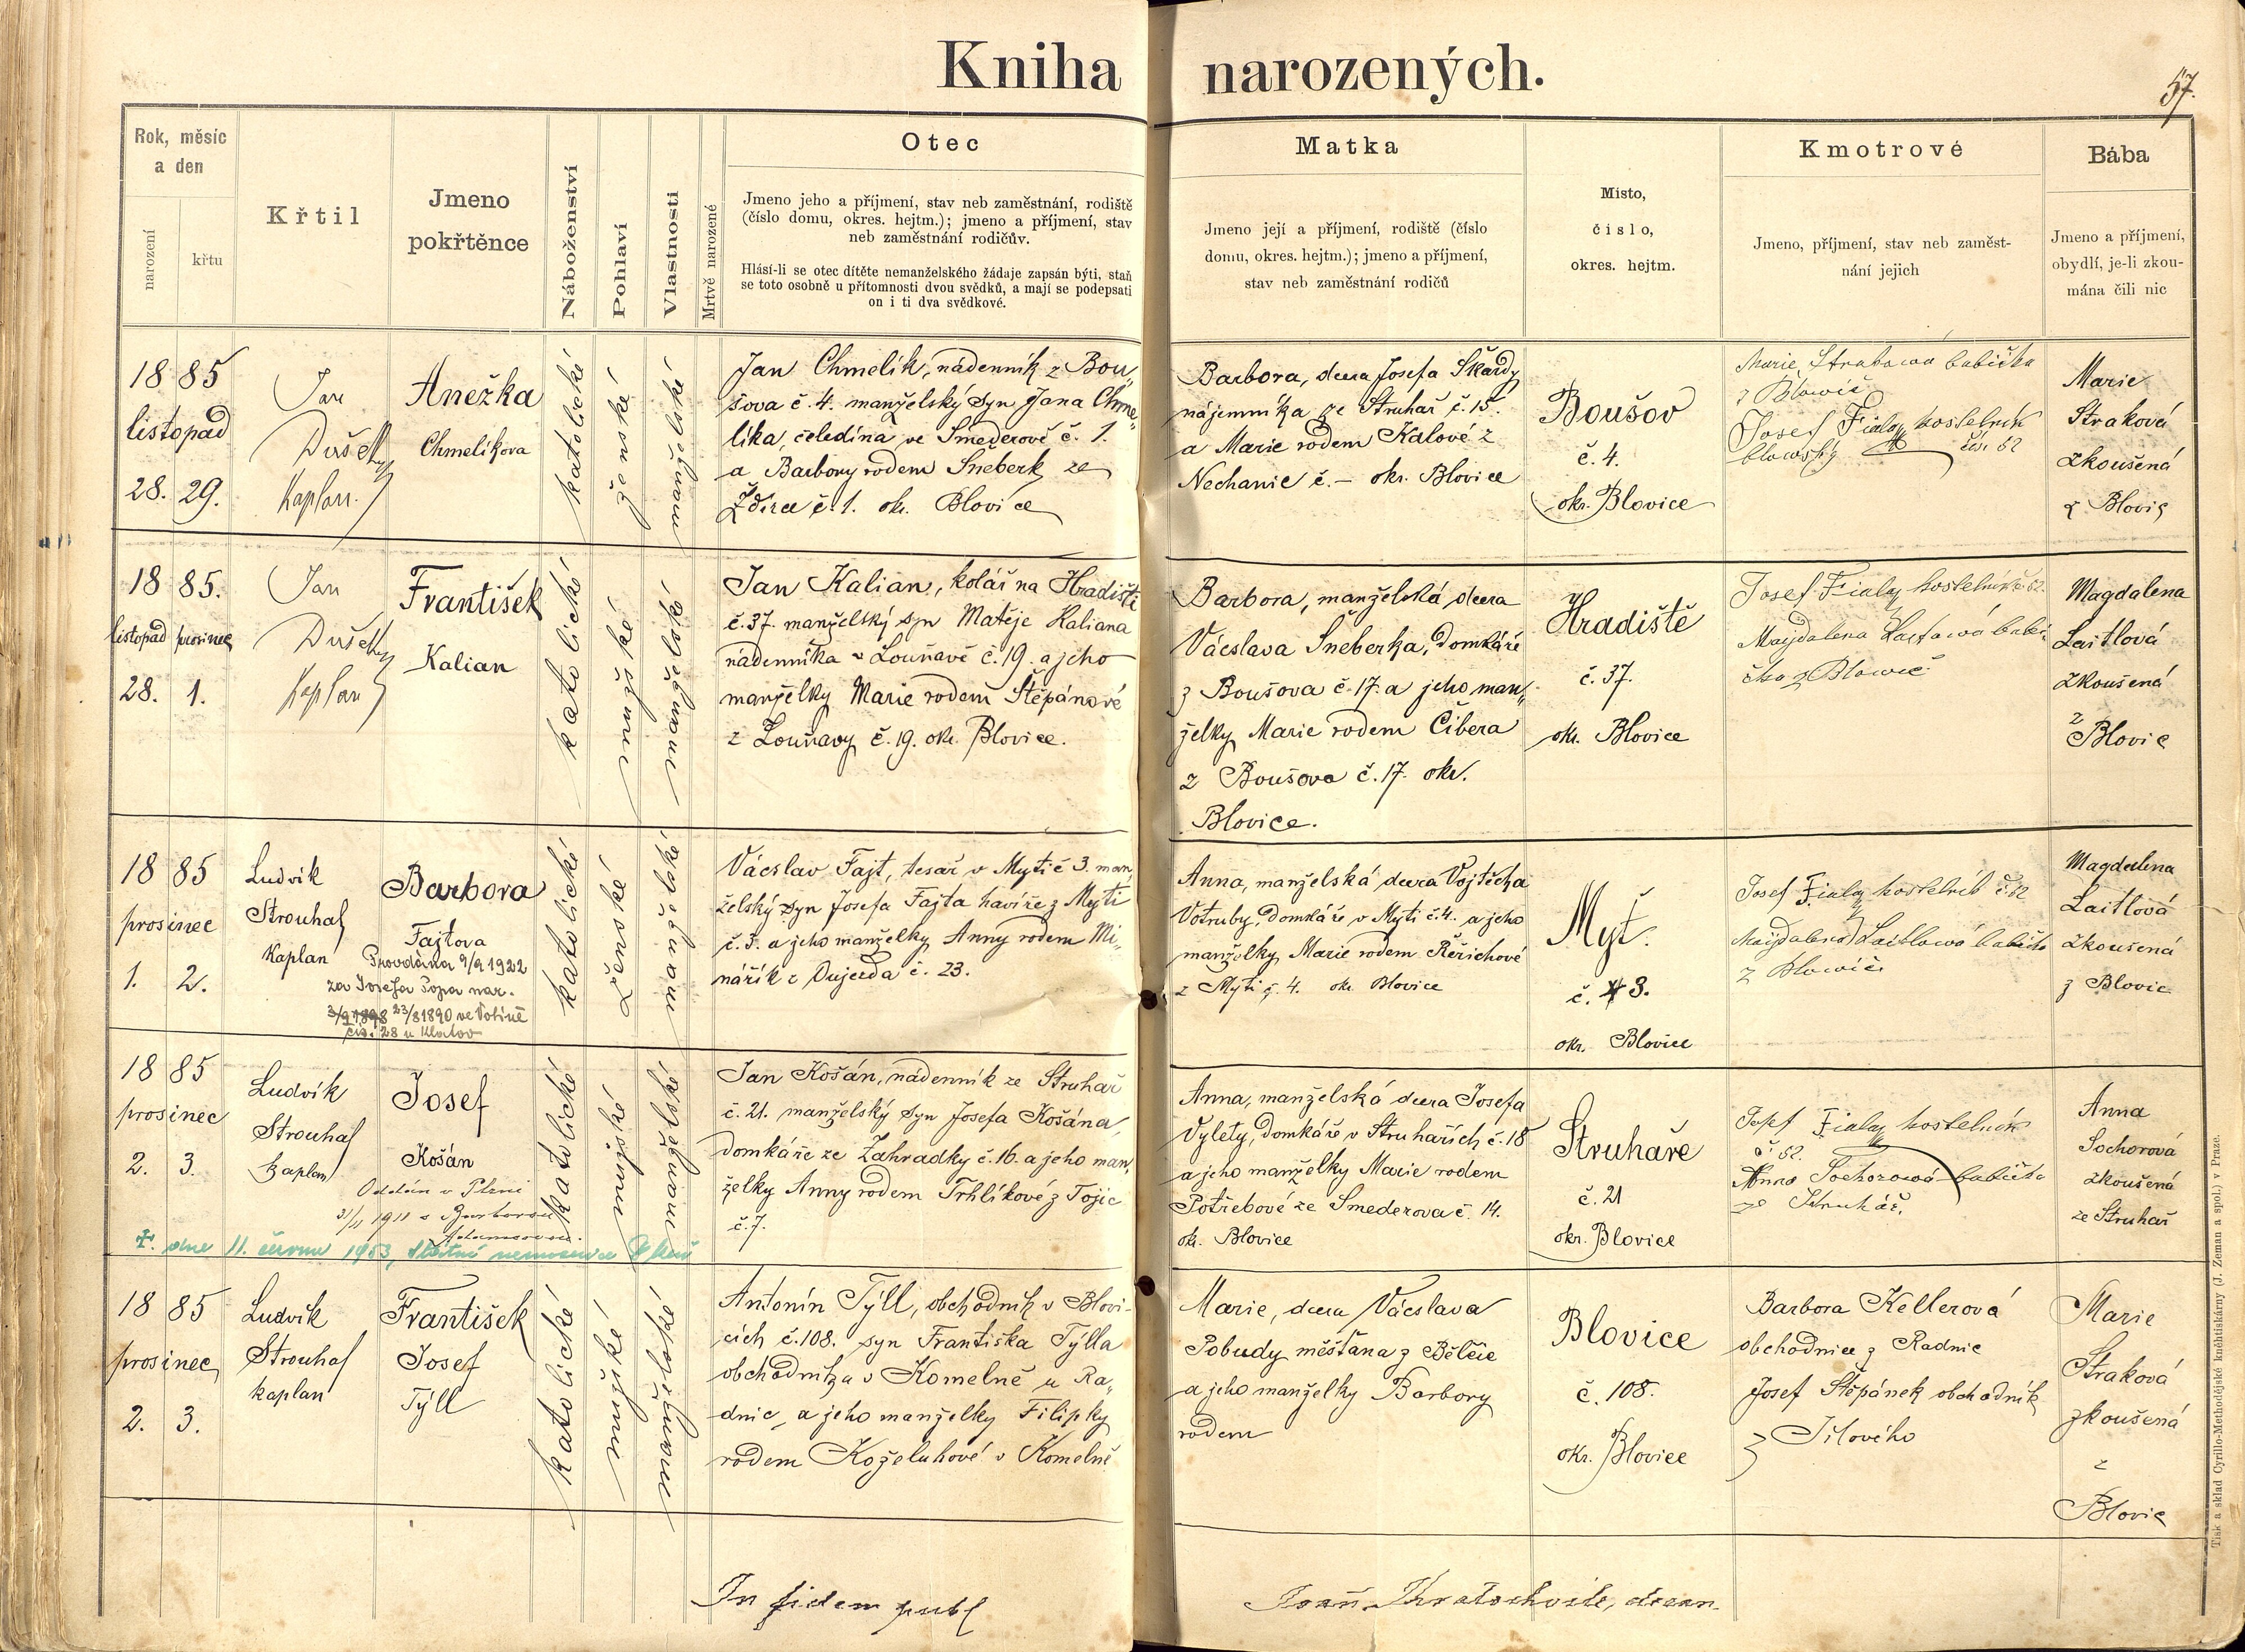 Kniha narozených.
57.
Rok, měsíc
a den
narození
křtu
Křtil
Jmeno
pokřtěnce
Náboženství
Pohlaví
Vlastnosti
Mrtvě narozené
Otec
Jmeno jeho a příjmení, stav neb zaměstnání, rodiště
(číslo domu, okres. hejtm.); jmeno a příjmení, stav
neb zaměstnání rodičův.
Hlásí-li se otec dítěte nemanželského žádaje zapsán býti, staň
se toto osobně u přítomnosti dvou svědků, a mají se podepsati
on i ti dva svědkové.
Matka
Jmeno její a příjmení, rodiště (číslo
domu, okres. hejtm.); jmeno a příjmení,
stav neb zaměstnání rodičů
Místo,
číslo,
okres. hejtm.
Kmotrové
Jmeno, příjmení, stav neb zaměst-
nání jejich
Bába
Jmeno a příjmení,
obydlí, je-li zkou-
mána čili nic
1885
listopad
28. 29.
Jan
Dušek
Kaplan
Anežka
Chmelíkova
katolické
ženské
manželské
Jan Chmelík, nádenník z Bou„
šova č. 4. manželský syn Jana Chme„
líka, čeledína ve Smederově č. 1.
a Barbory rodem Sneberk ze
Ždírce č. 1. okr. Blovice
Barbora, dcera Josefa Škardy
nájemníka ze Struhař č. 15.
a Marie rodem Kalové z
Nechanic č. – okr. Blovice
Boušov
č. 4.
okr. Blovice
Marie Straková babička
z Blowic
Josef Fiala kostelník
blowský čís. 52
Marie
Straková
zkoušená
z Blovic
1885.
listopad prosinec
28. 1.
Jan
Dušek
Kaplan
František
Kalian
katolické
mužské
manželské
Jan Kalian, kolář na Hradišti
č. 37. manželský syn Matěje Kaliana
nádenníka v Louňavě č. 19. a jeho
manželky Marie rodem Štěpánové
z Louňavy č. 19. okr. Blovice.
Barbora, manželská dcera
Václava Sneberka, domkáře
z Boušova č. 17. a jeho man„
želky Marie rodem Čibera
z Boušova č. 17. okr.
Blovice.
Hradiště
č. 37.
okr. Blovice
Josef Fiala kostelník č. 52
Magdalena babi„
čka z Blowic
Magdalena
Laitlová
zkoušená
z
Blovic
1885
prosinec
1. 2.
Ludvík
Strouhal
Kaplan
Barbora
Fajtova
Provdána 9/9 1922
za Josefa Popa nar.
3/9 1898 23/8 1890 ve Volině
čís. 28 u Klatov
katolické
ženské
manželské
Václav Fajt, tesař v Mýti č 3. man„
želský syn Josefa Fajta havíře z Mýti
č. 3. a jeho manželky Anny rodem Mi„
nářík z Vujezda č. 23.
Anna, manželská dcera Vojtěcha
Votruby, domkáře v Mýti č. 4. a jeho
manželky Marie rodem Řeřichové
z Mýti č. 4. okr. Blovice
Mýť.
č. 3.
okr. Blovice
Josef Fiala kostelník č. 52
Magdalena Laitlowá babička
z Blowic
Magdalena
Laitlová
zkoušená
z Blovic
1885
prosinec
2. 3.
Ludvík
Strouhal
kaplan
Josef
Košán
Oddán v Plzni
21/11 1911 s Barborou
katolické
mužské
manželské
†. dne 11. června 1953, Státní nemocnice Plzeň
Jan Košán, nádenník ze Struhař
č. 21. manželský syn Josefa Košána,
domkáře ze Zahradky č. 16. a jeho man„
želky Anny rodem Trhlíkové z Tojic
č. 7.
Anna, manželská dcera Josefa
Vylety, domkáře v Struhařích č. 18
a jeho manželky Marie rodem
Potřebové ze Smederova č. 14.
okr. Blovice
Struhaře
č. 21
okr. Blovice
Josef Fiala kostelník
č. 52.
Anna Sochorowá babička
ze Struhař.
Anna
Sochorová
zkoušená
ze Struhař
1885
prosinec
2. 3.
Ludvík
Strouhal
kaplan
František
Josef
Týll
katolické
mužské
manželské
Antonín Týll, obchodník v Blovi-
cích č. 108. syn Františka Týlla
obchodníka v Komelně u Ra„
dnic, a jeho manželky Filipky
rodem Koželuhové v Komelně
Marie, dcera Václava
Pobudy měšťana z Bělčic
a jeho manželky Barbory
rodem
Blovice
č. 108.
okr. Blovice
Barbora Kellerová
obchodnice z Radnic
Josef Štěpánek obchodník
z Jílového
Marie
Straková
zkoušená
z
Blovic
In fidem publ
Joan. Kratochvile, decan.
Tisk a sklad Cyrillo-Methodějské knihtiskárny (J. Zeman a spol.) v Praze.